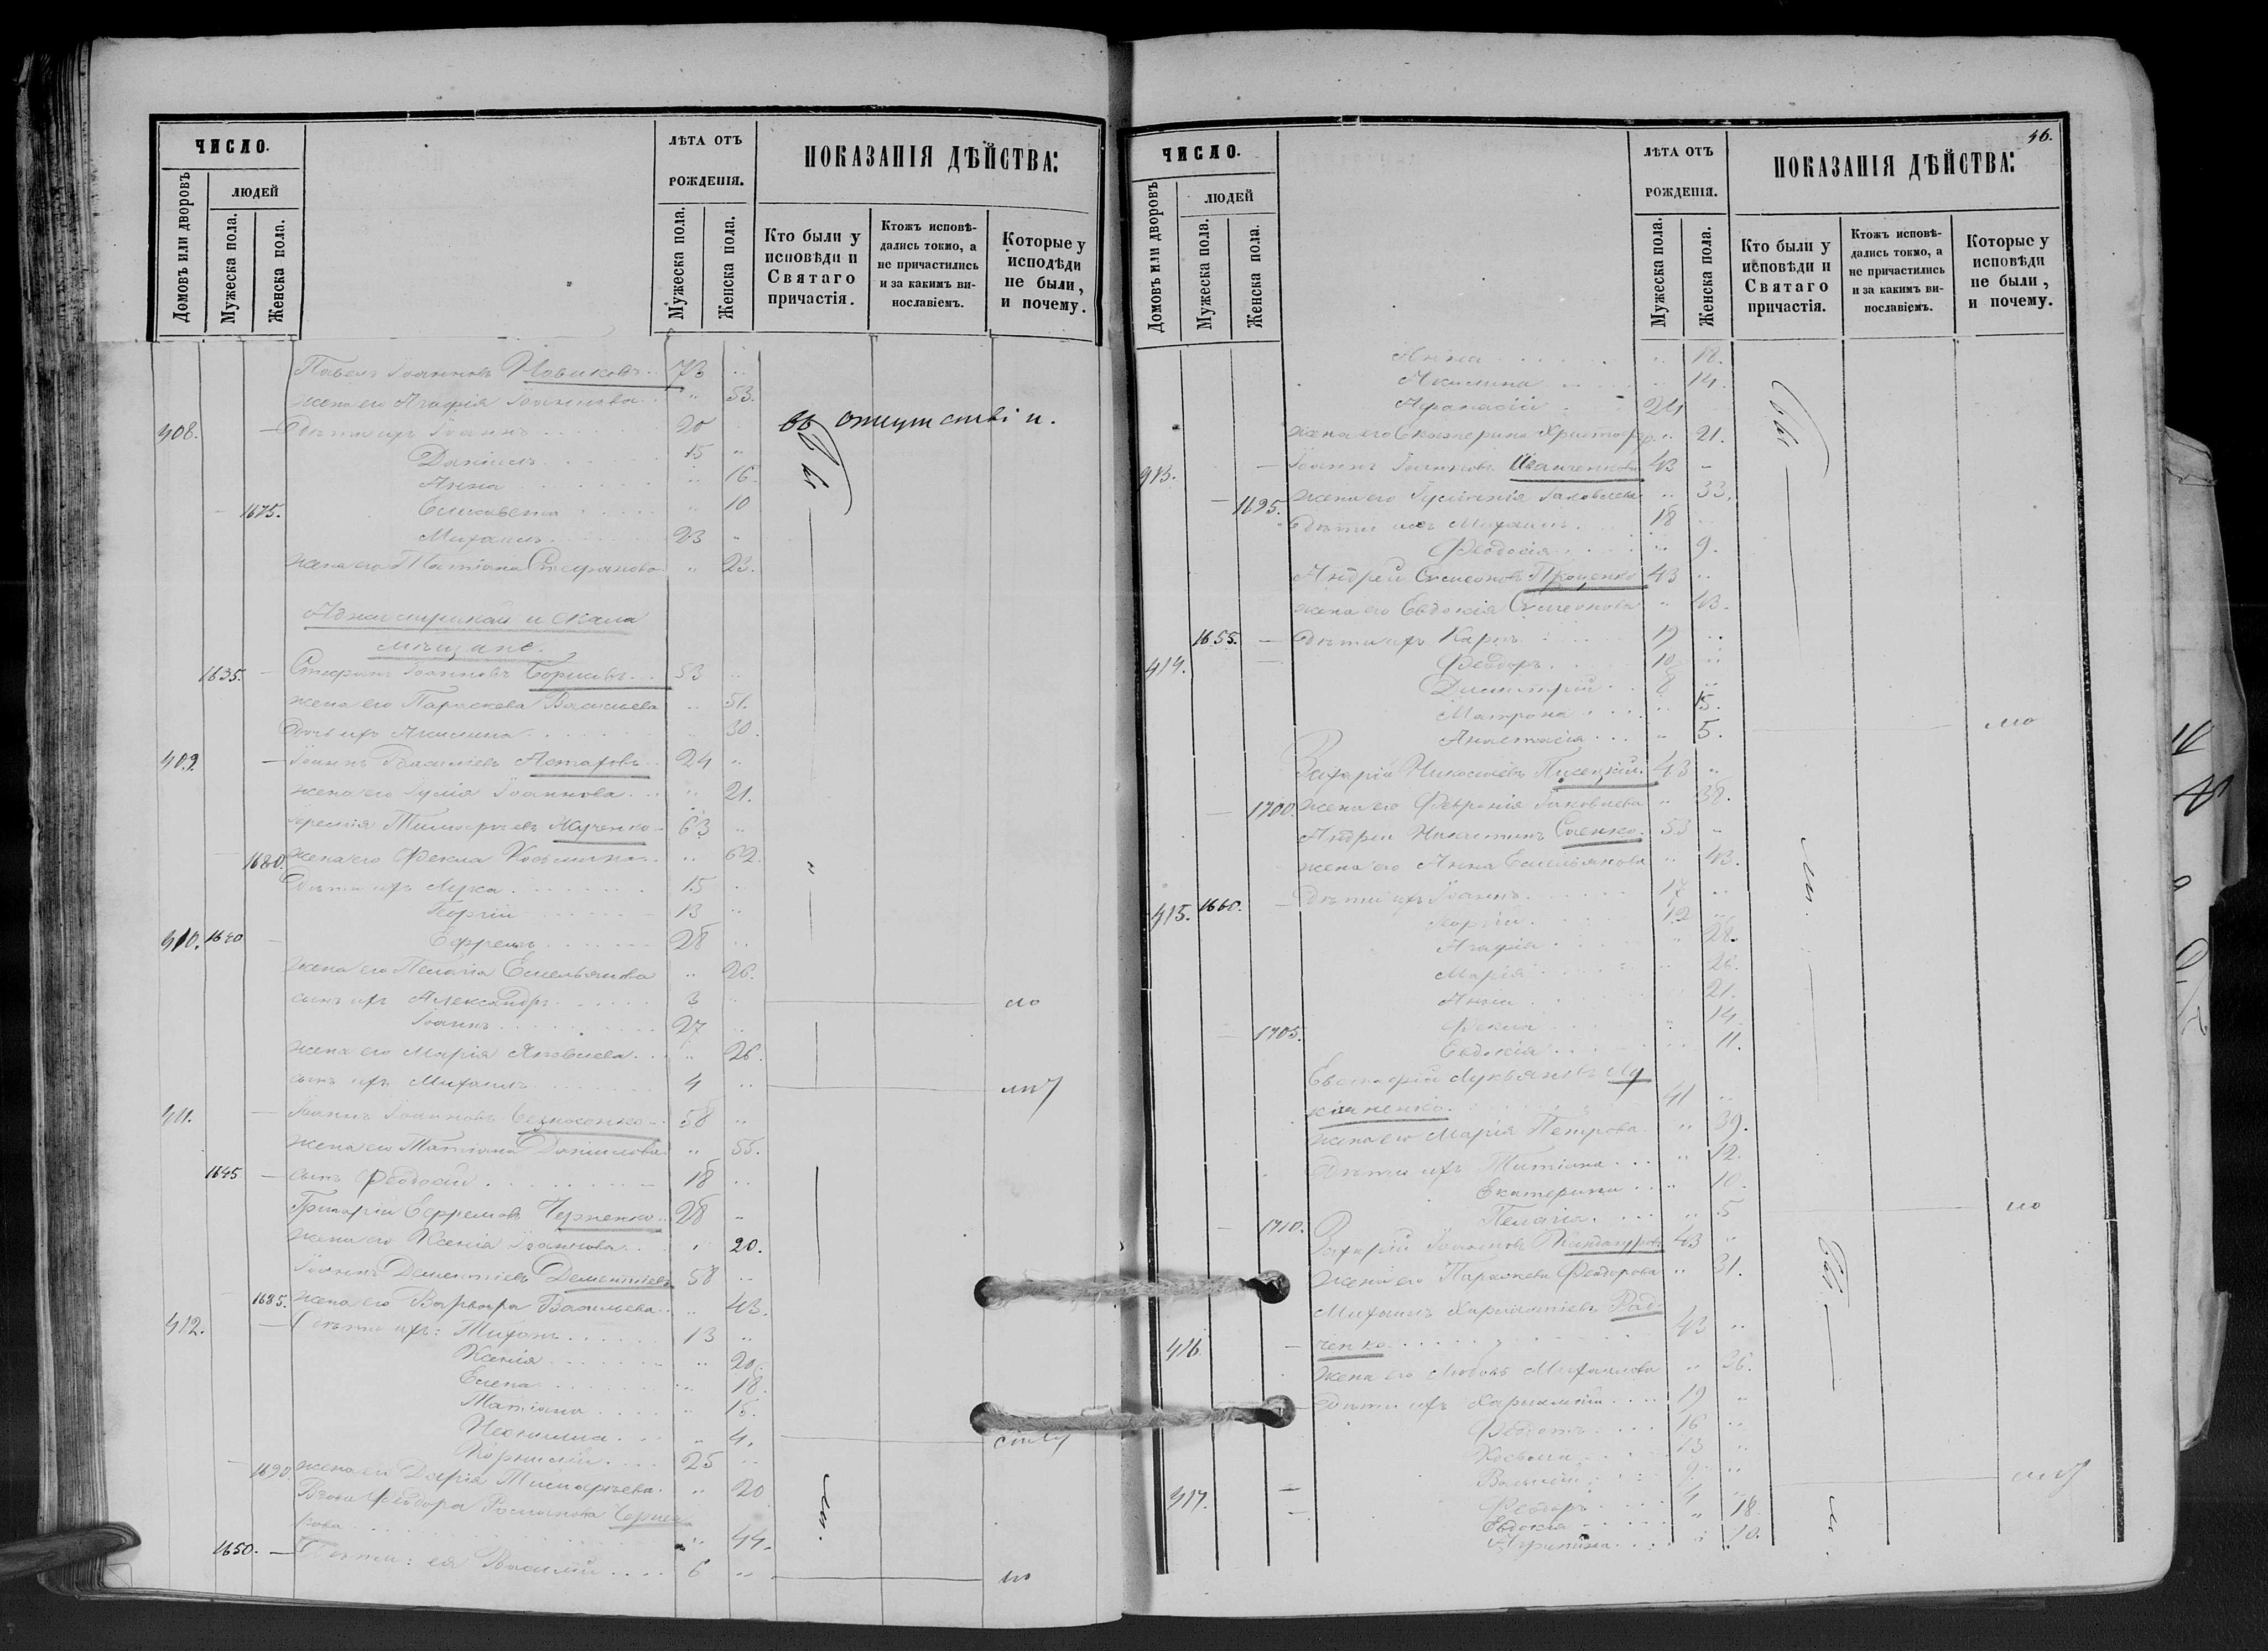 ЧИСЛО.
ЛЮДЕЙ
Домовъ или дворовъ
Мужеска пола.
Женска пола.
ЛѢТА ОТЪ
РОЖДЕНІЯ.
Мужеска пола.
Женска пола.
ПОКАЗАНІЯ ДѢЙСТВА:
Кто были у
исповѣди и
Святаго
причастія.
Ктожъ исповѣ-
дались токмо, а
не причастились
и за какимъ ви-
нословіемъ.
Которые у
исподѣди
не были,
и почему.
Павелъ Іоанновъ Новиковъ 73
жена его Агафія Іоаннова 53.
408. Дѣти ихъ Іоаннъ 20 въ отсутствіи.
Даніилъ 15
Анна 16.
1675. Елисавета 10
Михаилъ 23
жена его Татіана Стефанова 23.
и скала
мѣщане.
1635. Стефанъ Іоанновъ 53
жена его Параскева Васильева 51.
дочь ихъ Акилина 30.
409. Іоаннъ Василіевъ Астаховъ 24
жена его Іулія Іоаннова 21.
Тимофеевъ Жученко 63
1680. жена его Фекла Косьмина 62.
Дѣти ихъ Лука 15
Георгій 13
410. 1640 Ефремъ 28
жена его Пелагія Емельянова 26.
сынъ ихъ Александръ 3 мо
Іоаннъ 27
жена его Марія Яковлева 26.
сынъ ихъ Михаилъ 4
411. Іоаннъ Іоанновъ 58
жена его Татіана Даніилова 55.
1645 сынъ Феодосій 18
Григорій Ефремовъ Черненко 28
жена его Ксенія Іоаннова 20.
Іоаннъ Дементіевъ Дементіевъ 58
1685. жена его Варвара Васильева 43.
412. Дѣти ихъ: Тихонъ 13
Ксенія 20.
Елена 18.
Татіана 15.
4.
Корнилій 25
1690. жена его Дарія Тимофеева 20
Вдова Феодора Романова
44.
1650. Дѣти: ея Василій 6 мо
46.
ЧИСЛО.
ЛЮДЕЙ
Домовъ или дворовъ
Мужеска пола.
Женска пола.
ЛѢТА ОТЪ
РОЖДЕНІЯ.
Мужеска пола.
Женска пола.
ПОКАЗАНІЯ ДѢЙСТВА:
Кто были у
исповѣди и
Святаго
причастія.
Ктожъ исповѣ-
дались токмо, а
не причастились
и за какимъ ви-
нословіемъ.
Которые у
исповѣди
не были,
и почему.
Анна 18.
Акилина 14.
Афанасій 24
жена его Екатерина Христофор. 21.
413. Іоаннъ Іоанновъ Иванченковъ 43
1695. жена его Іустинія Іаковлева 33.
Дѣти ихъ Михаилъ 18
Феодосія 9.
Андрей Симеоновъ Проценко 43
жена его Евдокія Симеонова 43.
1655. Дѣти ихъ Карпъ 19
414. Феодоръ 10
Димитрій 8
Матрона 15.
Анастасія 5. мо
Захарій Николаевъ 43
1700. жена его Февронія Іаковлева 38.
Андрей Никитинъ Саенко 53
жена его Анна Емельянова 43.
415. 1660. Дѣти ихъ Іоаннъ 17
Георгій 12
Агафія 28.
Марія 26.
Анна 21.
Фекла 14.
1705. Евдокія 11.
Евстафій Лукьяновъ Лу
кіяненко. 41
жена его Марія Петрова 39.
Дѣти ихъ Татіана 12.
Екатерина 10.
Пелагія 5 мо
1710. Захарій Іоанновъ 43
жена его Параскева Феодорова 31.
Михаилъ Харлампіевъ Рад
416. ченко 43
жена его Любовь Михаилова 36.
Дѣти ихъ Харлампій 19
Феодотъ 16
Косьма 13
Василій 9
417. Феодоръ 4
Евдокія 18
10.